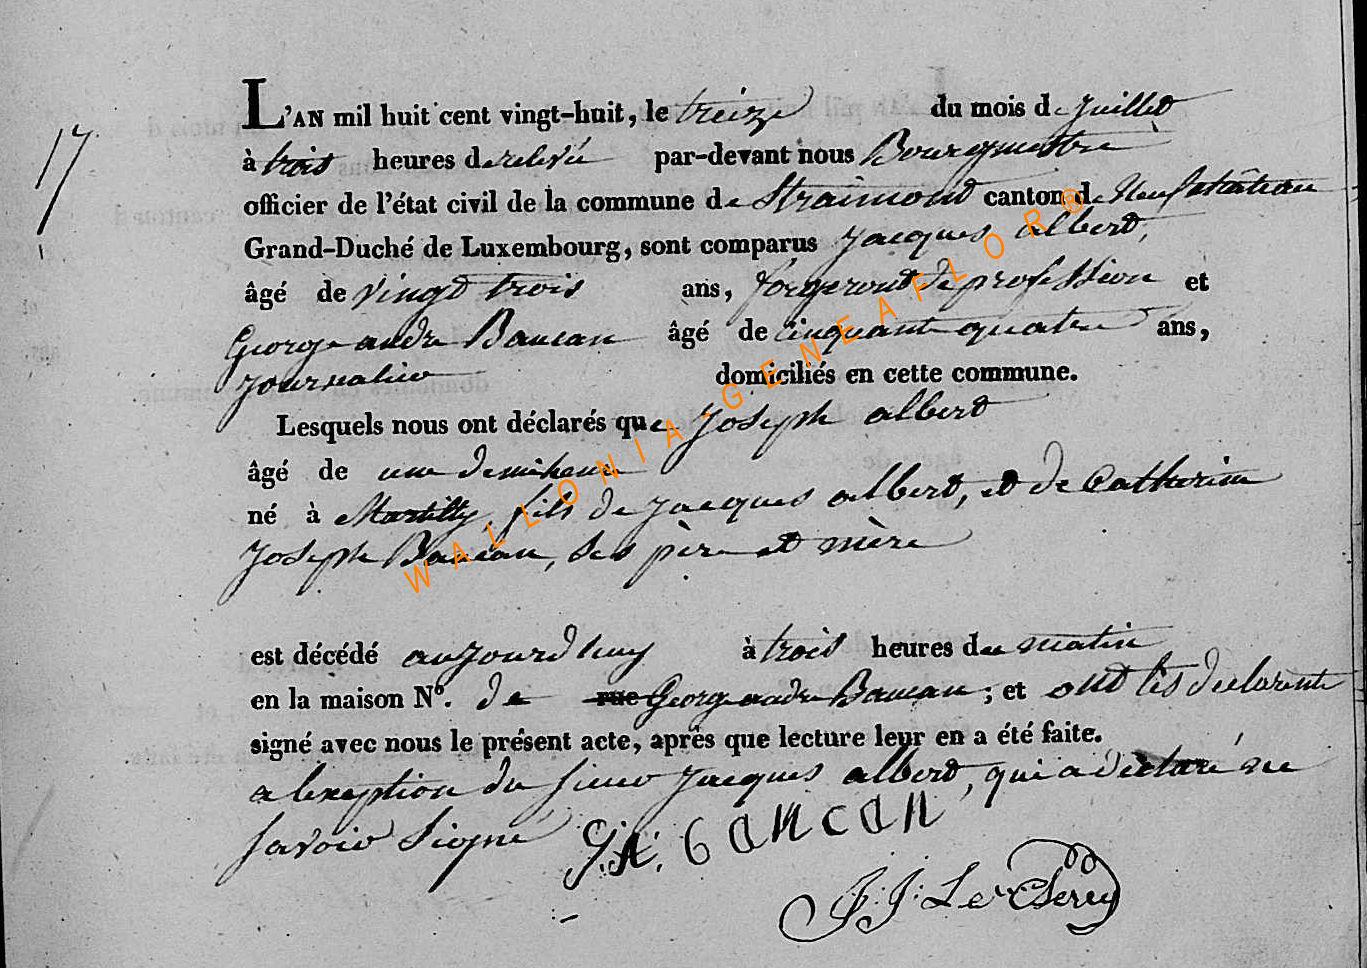 17
L'AN mil huit cent vingt-huit, le treize du mois de Juillet
à trois heures de relevée par-devant nous Bourgmestre
officier de l'état civil de la commune de Straimont canton de Neufchâteau
Grand-Duché de Luxembourg, sont comparus Jacques albert,
âgé de vingt trois ans, forgeront de profession et
George andre Bancan âgé de cinquante quatre ans,
Journalier domiciliés en cette commune.
Lesquels nous ont déclarés que Joseph albert
âgé de une demiheure
né à Martilly, fils de Jacques albert, et de Catherine
Joseph Bancan, ses père et mère
est décédé aujourdhuy à trois heures du matin
en la maison N°. de rue George andre Bancan; et ont les déclarents
signé avec nous le présent acte, après que lecture leur en a été faite.
a lexeption du sieur Jacques albert, qui a déclaré ne
savoir signé G: A: bancan
J: J: Le Clerey
WALLONIA-GENEAFLOR®